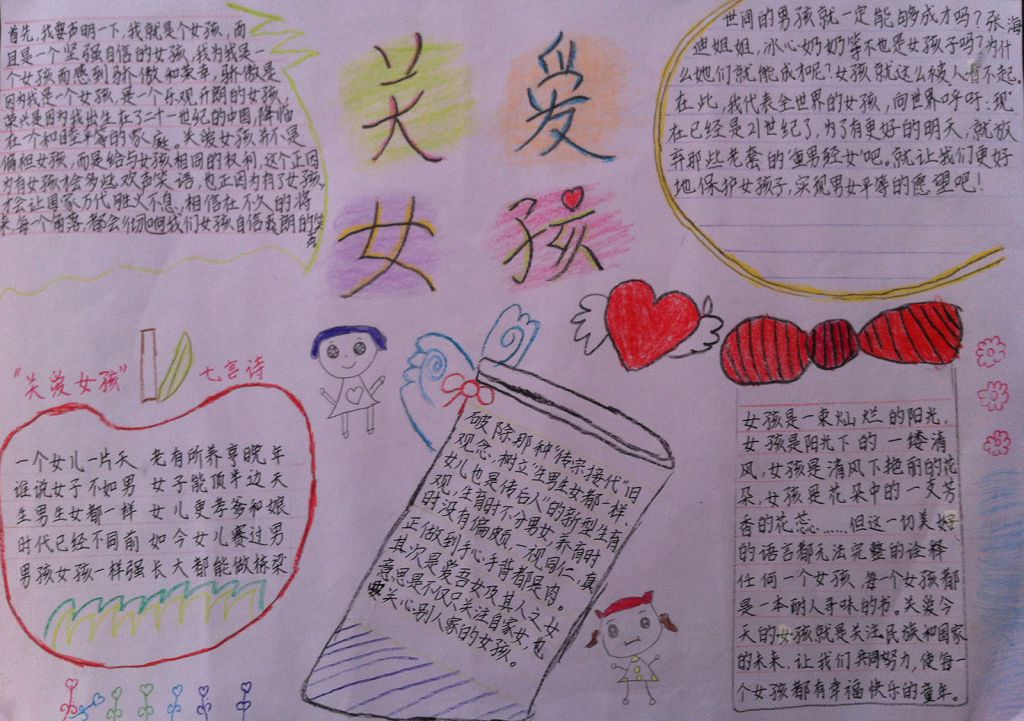 首先,我要声明一下,我就是个女孩,而
且是一个坚强自信的女孩,我为我是一
个女孩而感到骄傲和荣幸,骄傲是
因为我是一个女孩,是一个乐观开朗的女孩,
荣兴是因为我出生在了二十一世纪的中国,降临
在一个和睦平等的家庭。关爱女孩并不是
偏袒女孩,而是给与女孩相同的权利,这个正因
为有女孩才会多些欢声笑语,也正因为有了女孩,
才会让国家万代胜火不息,相信在不久的将
来,每一个角落,都会彻响我们女孩自信爽朗的笑
声
关爱
女孩
世间的男孩就一定能够成才吗?张海
迪姐姐,冰心奶奶等不也是女孩子吗?为什
么她们就能成才呢?女孩就这么被人看不起。
在此,我代表全世界的女孩,向世界呼吁:现
在已经是21世纪了,为了有更好的明天,就放
弃那些老套的“重男轻女”吧。就让我们更好
地保护女孩子,实现男女平等的愿望吧!
“关爱女孩” 七言诗
一个女儿一片天 老有所养享晚年
谁说女子不如男 女子能顶半边天
生男生女都一样 女儿更孝爹和娘
时代已经不同前 如今女儿赛过男
男孩女孩一样强 长大都能做栋梁
破除那种“传宗接代”旧
观念,树立“生男生女都一样、
女儿也是传后人”的新型生育
观,生育时不分男女,养育时
时没有偏颇,一视同仁,真
正做到手心手背都是肉。
其次是爱吾女及其人之女
意思是不仅只关注自家女,也
要关心别人家的女孩。
女孩是一束灿烂的阳光,
女孩是阳光下的一缕清
风,女孩是清风下艳丽的花
朵,女孩是花朵中的一支芳
香的花蕊……但这一切美好
的语言都无法完整的诠释
任何一个女孩,每一个女孩都
是一本耐人寻味的书。关爱今
天的女孩就是关注民族和国家
的未来,让我们共同努力,使每一
个女孩都有幸福快乐的童年。